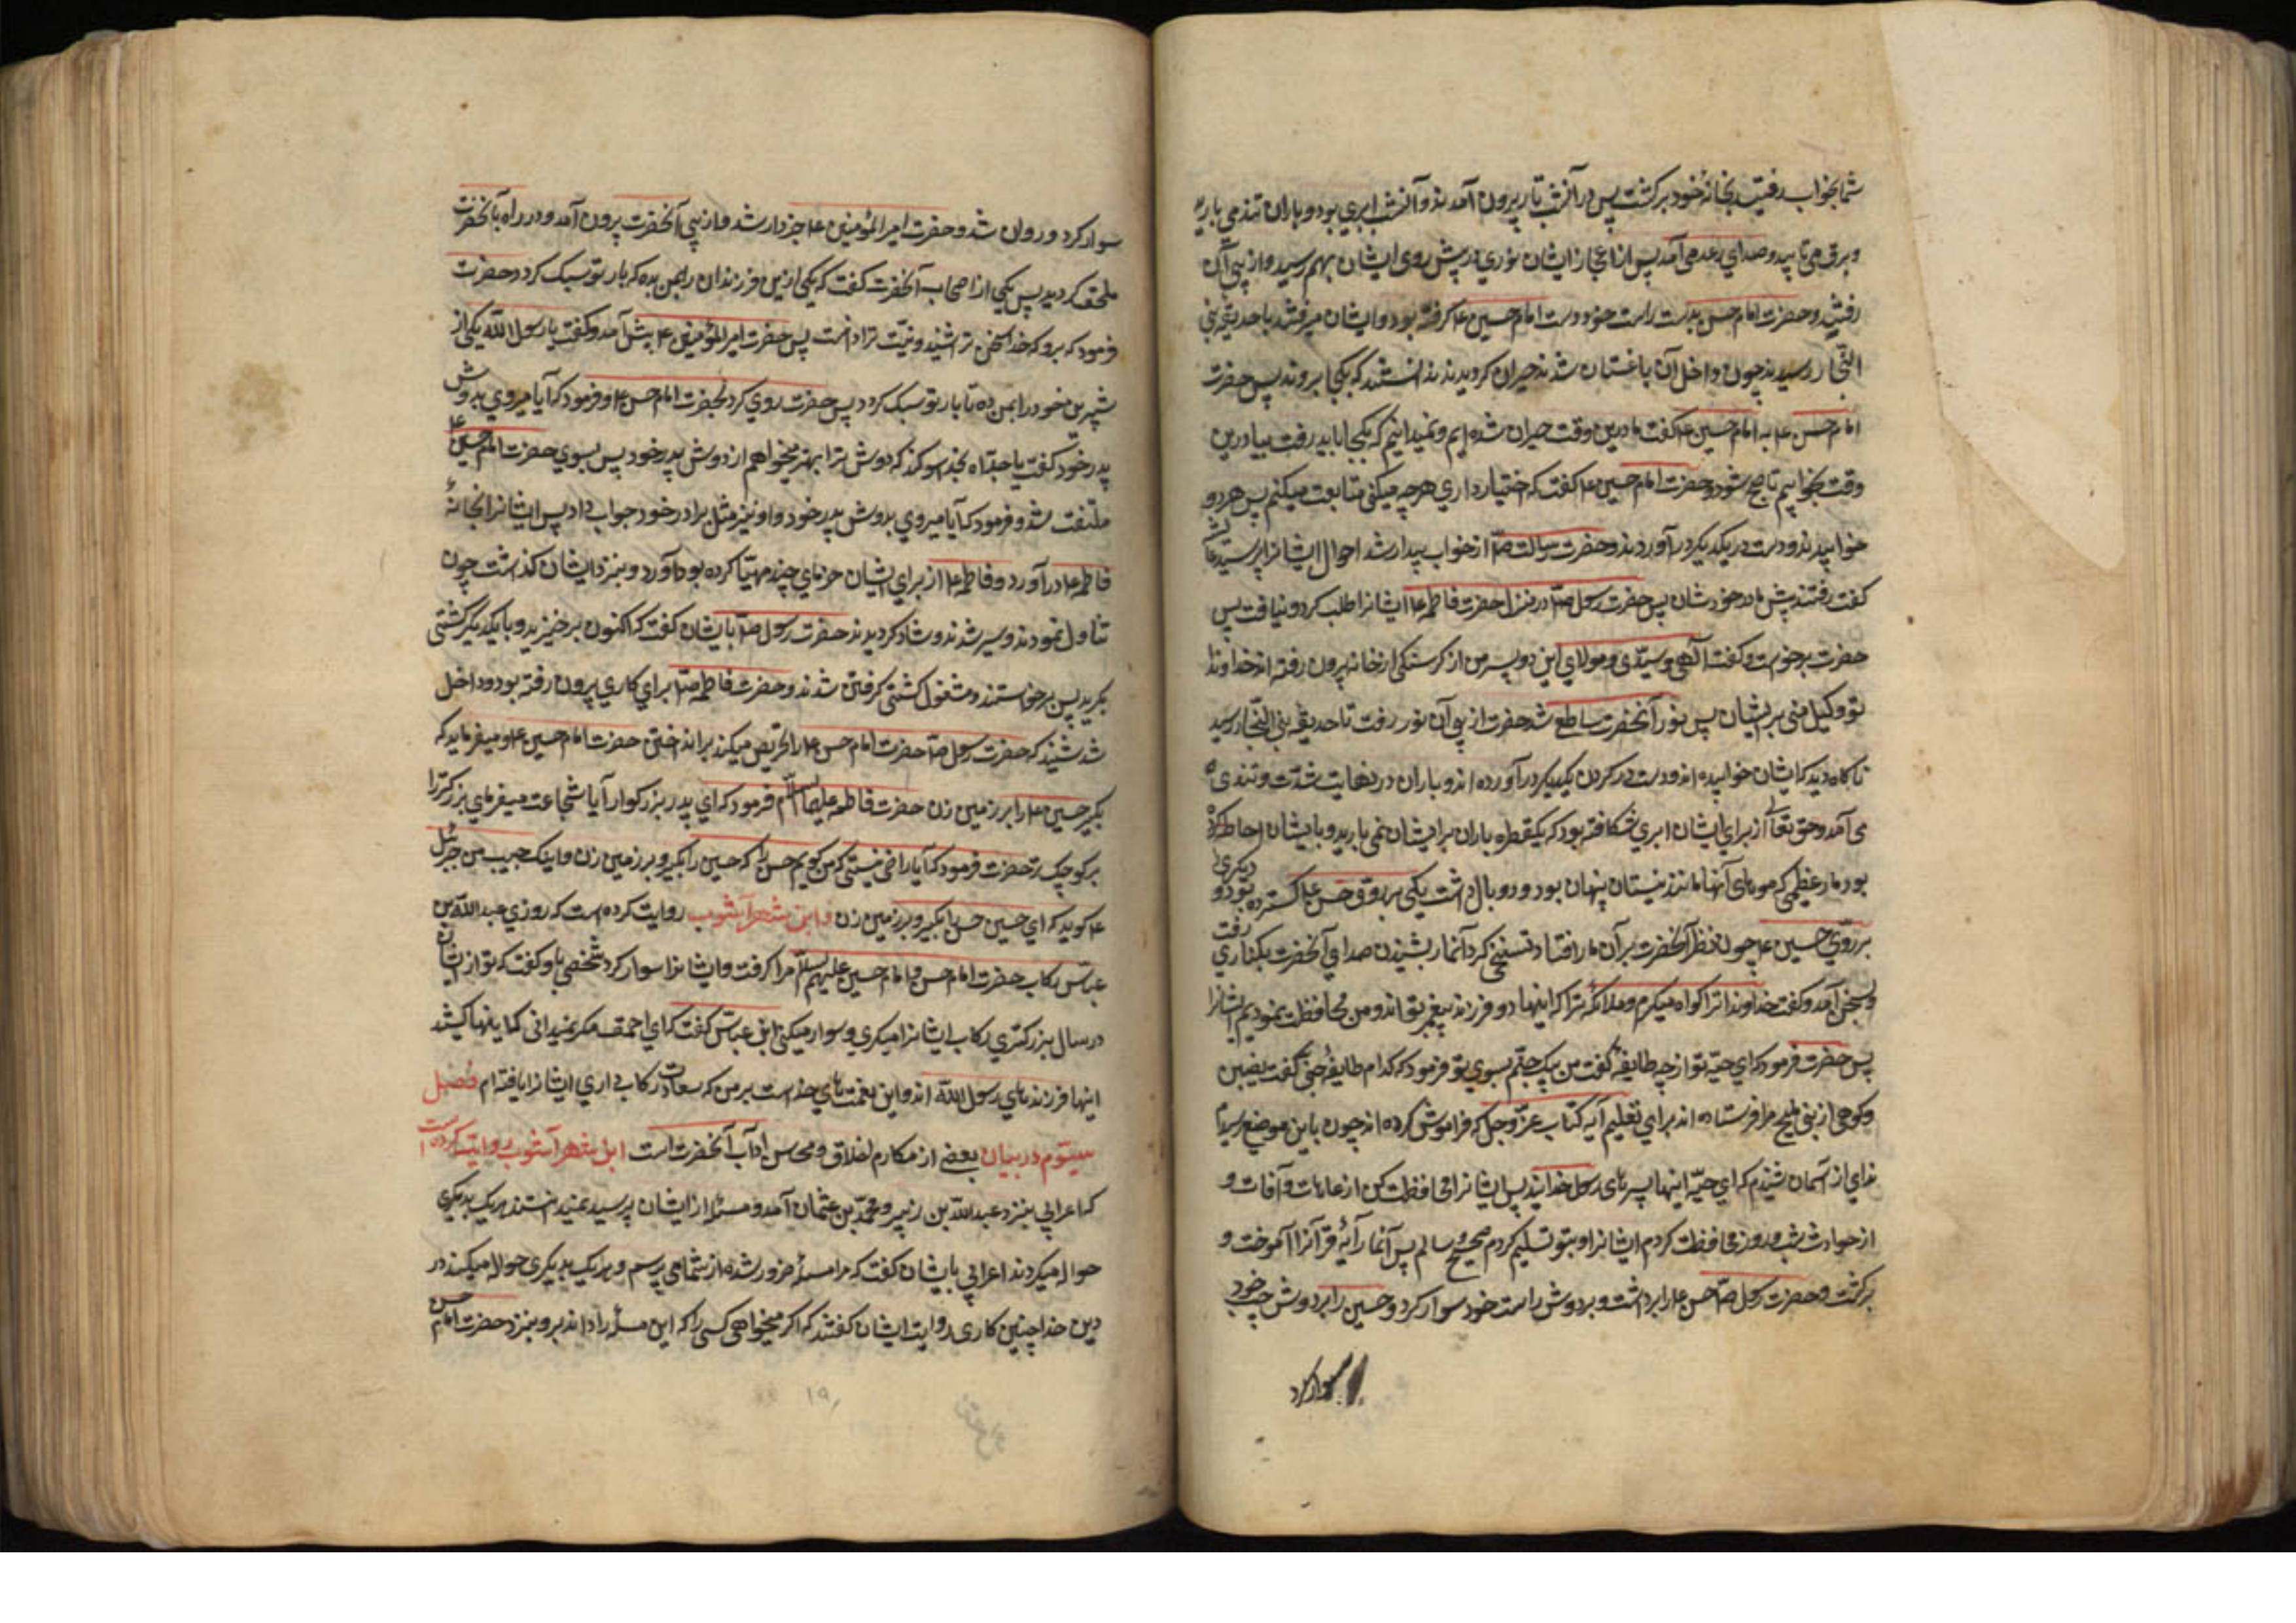 شما بخواب رفتید بخانهٔ خود برکشت پس در آنشب تار بیرون آمدند و آنشب ابری بود و باران تند می بارید
و برق می تابید و صدای رعد می آمد پس از اعجاز ایشان نوری در پیش روی ایشان بهم رسید و از پی آن
رفتند و حضرت امام حسن بدست راست خود دست امام حسین ع کرفته بود و ایشان میرفتند تا بحدیقه بنی
النجار رسیدند چون داخل آن باغستان شدند حیران کردیدند ندانستند که بکجا بروند پس حضرت
امام حسن ع به امام حسین ع کفت ما درین وقت حیران شده ایم و نمیدانیم که بکجا باید رفت بیا درین
وقت بخوابیم تا صبح شود و حضرت امام حسین ع کفت که اختیار داری هرچه میکنی متابعت میکنم پس هر دو
خوابیدند و دست در یکدیکر در آوردند و حضرت رسالت ص از خواب بیدار شد احوال ایشانرا پرسید
کفت رفتند پیش مادر خودشان پس حضرت رسول ص در منزل حضرت فاطمه ع ایشانرا طلب کرد و نیافت پس
حضرت برخواست و کفت الهی و سیدی و مولای این دو پسر من از کرسنکی از خانه بیرون رفته اند خداوندا
تو وکیل منی بر ایشان پس نور آنحضرت ساطع شد حضرت از پی آن نور رفت تا حدیقه بنی النجار رسید
ناکاه دید که ایشان خوابیده اند و دست در کردن یکدیکر در آورده اند و باران در نهایت شدت و تندی
می آمد و حق تعالی از برای ایشان ابری شکافته بود که یکقطره باران بر ایشان نمی بارید و بایشان احاطه کرده
بود مار عظیمی که موهای آنها مانند نیستان پنهان بود و دو بال داشت یکی بر روی حسن ع کسترده بود و دیکری
بر روی حسین ع چون نظر آنحضرت بر آن مار افتاد تنحنحی کرد آنمار بشنیدن صدای آنحضرت بکناری رفت
و بسخن آمد و کفت خداوندا ترا کواه میکیرم و ملائکه ترا که اینها دو فرزند پیغمبر تو اند و من محافظت نمودم ایشانرا
پس حضرت فرمود که ای حیه تو از چه طایفهٔ کفت من پیک جنم بسوی تو فرمود که کدام طایفهٔ جنی کفت نصیبین
و کروهی از بنی ملیح مرا فرستاده اند برای تعلیم آیه کتاب عز و جل که فراموش کرده اند چون باین موضع رسیدم
ندای از آسمان شنیدم که ای حیه اینها پسرهای رسول خدایند پس ایشانرا محافظت کن از عاهات و آفات و
از حوادث شب و روز محافظت کردم ایشانرا و بتو تسلیم کردم صحیح و سالم پس آنمار آیهٔ قرآنرا آموخت و
برکشت و حضرت رسول ص حسن ع را برداشت و بر دوش راست خود سوار کرد و حسین را بر دوش چپ خود
سوار کرد
سوار کرد و روان شد و حضرت امیر المؤمنین ع خبردار شد و از پی آنحضرت بیرون آمد و در راه بآنحضرت
ملحق کردید پس یکی از اصحاب آنحضرت کفت که یکی ازین فرزندان را بمن بده که بار تو سبک کردد حضرت
فرمود که برو که خدا سخن ترا شنید و نیت ترا دانست پس حضرت امیر المؤمنین ع پیش آمد و کفت یا رسول الله یکی از
شیرین خود را بمن ده تا بار تو سبک کردد پس حضرت روی کرد بحضرت امام حسن ع و فرمود که آیا میروی بدوش
پدر خود کفت یا جداه بخدا سوکند که دوش ترا بهتر میخواهم از دوش پدر خود پس بسوی حضرت امام حسین ع
ملتفت شد و فرمود که آیا میروی بدوش پدر خود و او نیز مثل برادر خود جواب داد پس ایشانرا بخانهٔ
فاطمه ع در آورد و فاطمه ع از برای ایشان خرمای چند مهیا کرده بود آورد و بنزد ایشان کذاشت چون
تناول نمودند و سیر شدند و شاد کردیدند حضرت رسول ص بایشان کفت که اکنون برخیزید و با یکدیکر کشتی
بکیرید پس برخواستند و مشغول کشتی کرفتن شدند و حضرت فاطمه ص برای کاری بیرون رفته بود داخل
شد شنید که حضرت رسول ص حضرت امام حسن ع را تحریص میکند بر انداختن حضرت امام حسین ع و میفرماید که
بکیر حسین ع را بر زمین زن حضرت فاطمه علیها السلم فرمود که ای پدر بزرکوار آیا شجاعت میفرمای بزرکتر را
بر کوچکتر حضرت فرمود که آیا راضی نیستی که من کویم حسن را که حسین را بکیر و بر زمین زن و اینک حبیب من جبرئیل
ع کوید که ای حسین حسن را بکیر و بر زمین زن و ابن شهر آشوب روایت کرده است که روزی عبد الله بن
عباس رکاب حضرت امام حسن و امام حسین علیهم السلم را کرفت و ایشانرا سوار کرد شخصی باو کفت که تو از ایشان
در سال بزرکتری رکاب ایشانرا میکیری و سوار میکنی ابن عباس کفت که ای احمق مکر نمیدانی که اینها کیستند
اینها فرزندهای رسول الله اند و این نعمتهای خداست بر من که سعادت رکاب داری ایشانرا یافته ام فصل
سیوم در بیان بعضی از مکارم اخلاق و محاسن آداب آنحضرت است ابن شهر آشوب روایت کرده است
که اعرابی بنزد عبد الله بن زبیر و محمد بن عثمان آمد و مسئله از ایشان پرسید نمیدانستند هر یک بدیکری
حواله میکردند اعرابی بایشان کفت که مرا مسئلهٔ ضرور شده از شما می پرسم و هر یک بدیکری حواله میکنید در
دین خدا چنین کاری رواست ایشان کفتند که اکر میخواهی کسی را که این مسئله را داند برو بنزد حضرت امام حسن
۱۹